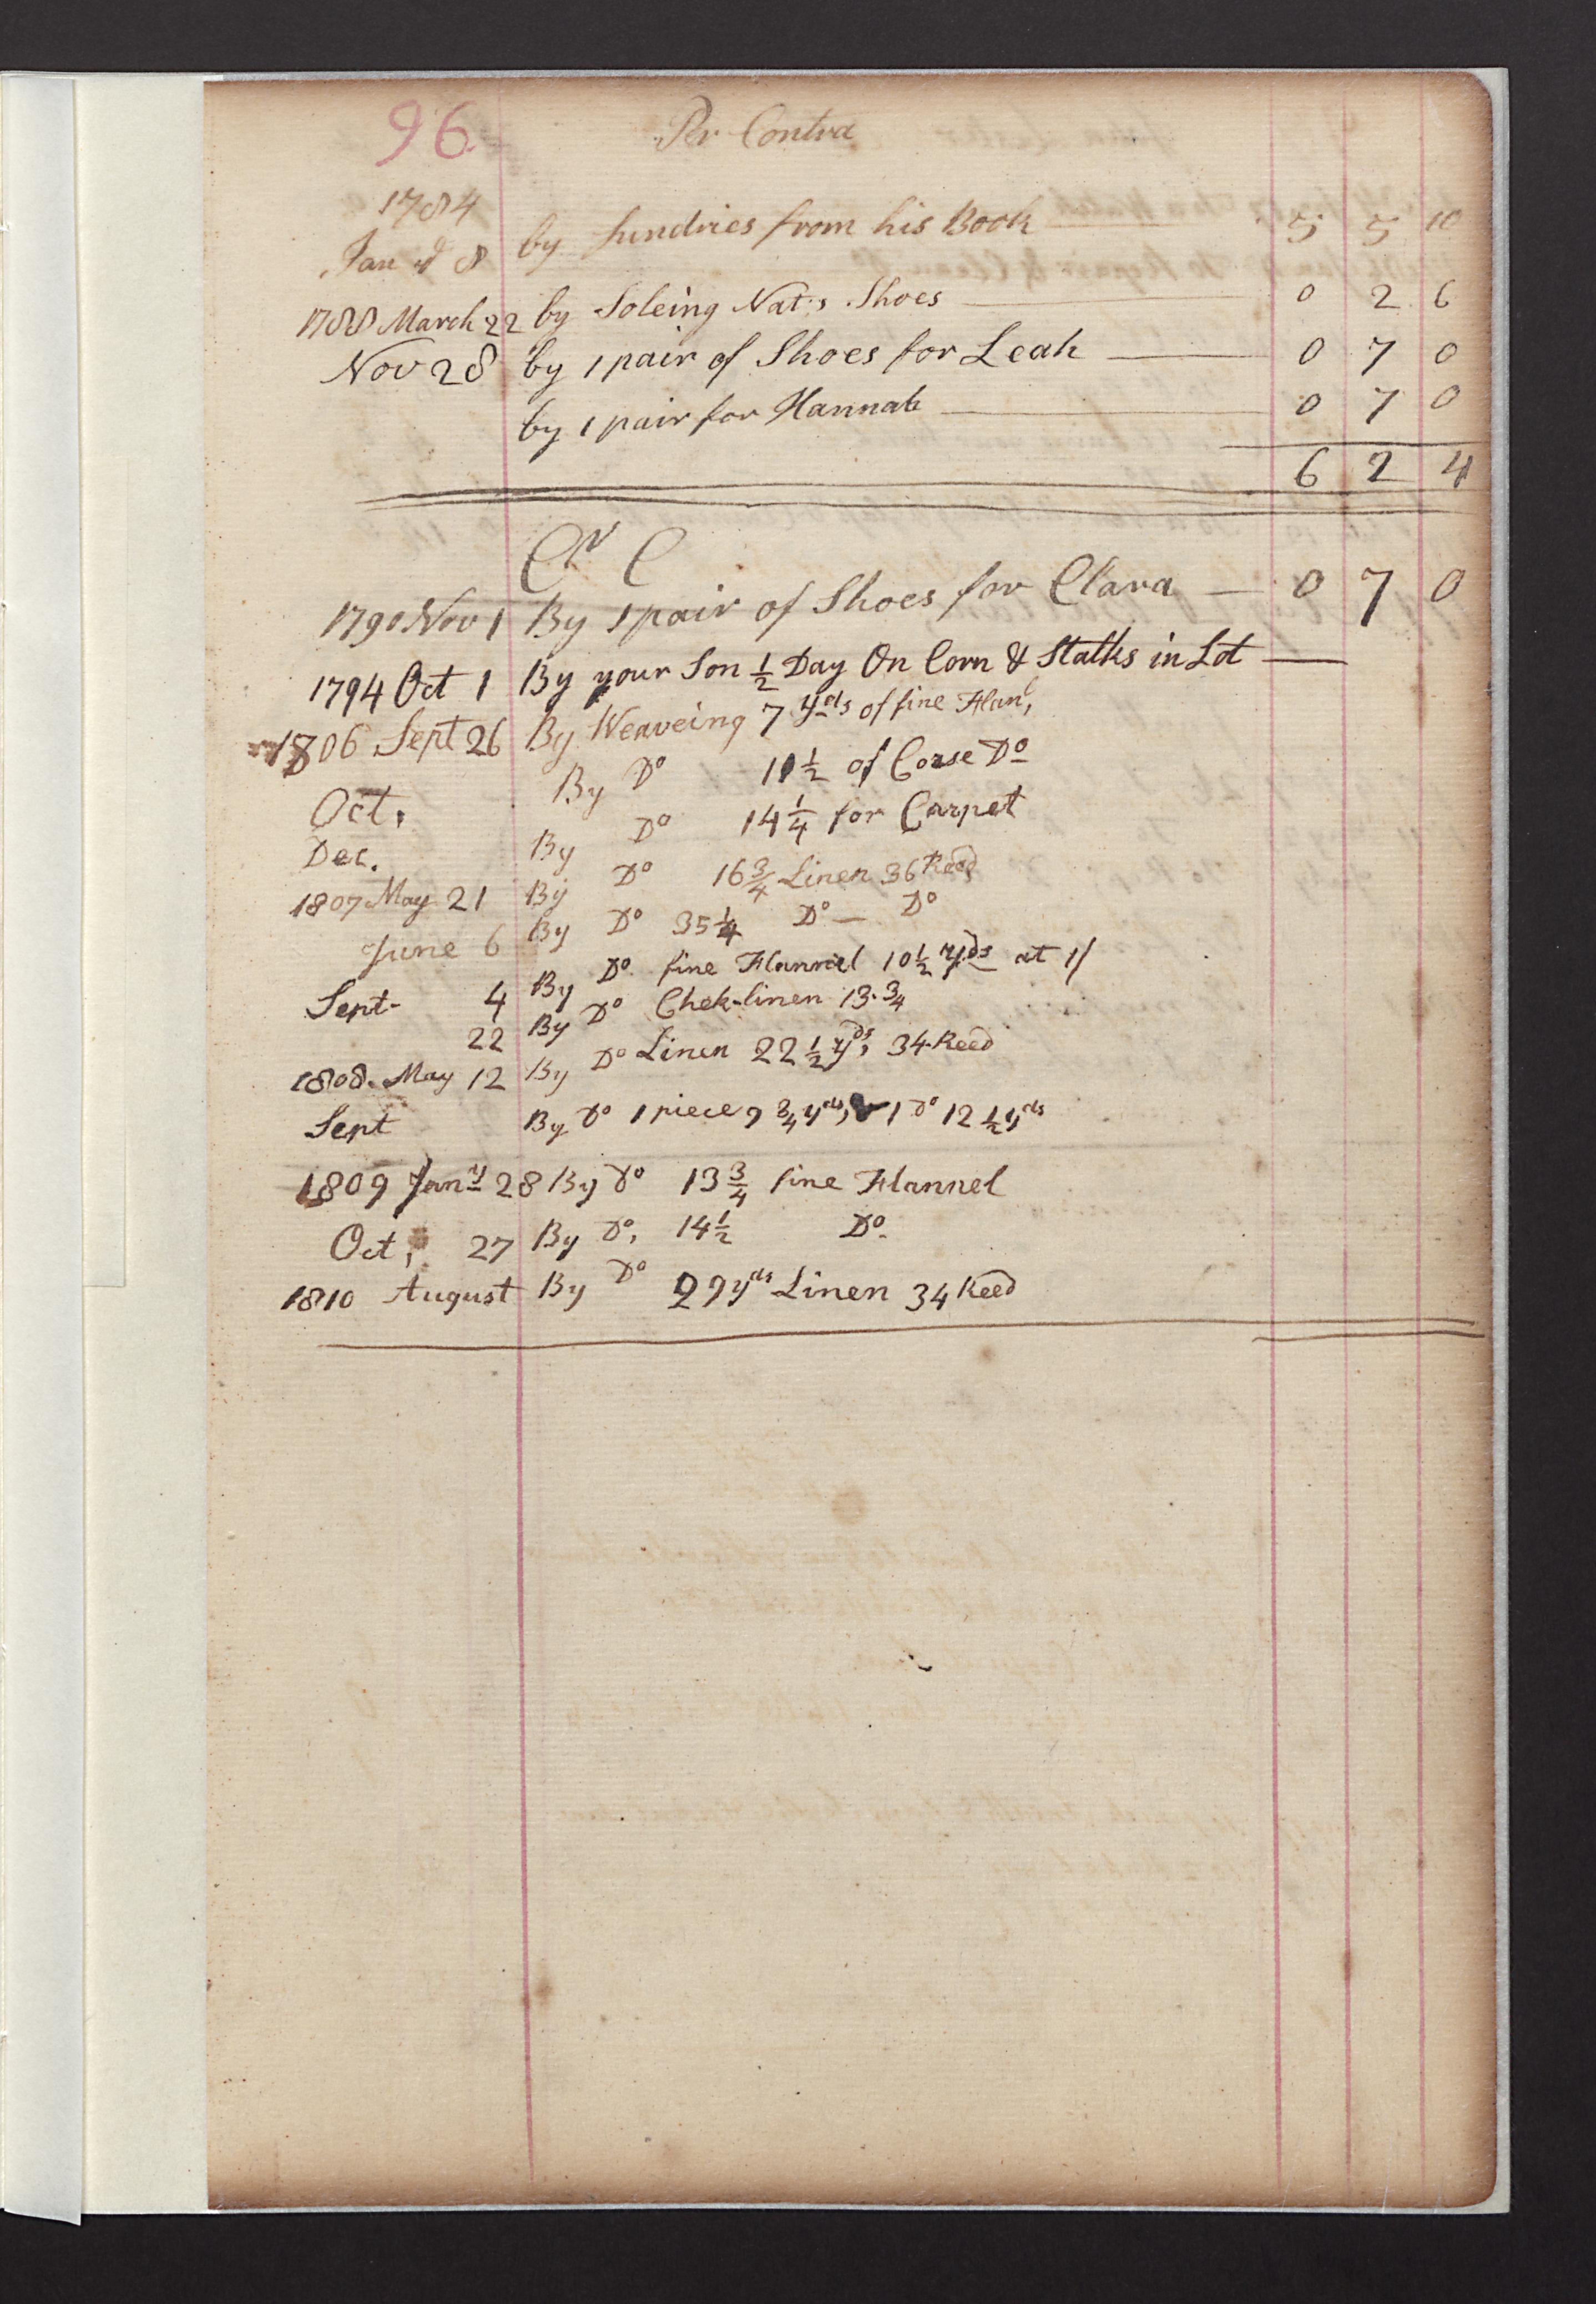 96
Per Contra
1784
Jany 8 by Sundries from his Book 5 5 10
1788 March 22 by Soleing Nat:s Shoes 0 2 6
Nov 28 by 1 pair of Shoes for Leah 0 7 0
by 1 pair for Hannah 0 7 0
6 2 4
Cr C
1790 Nov 1 By 1 pair of Shoes for Clara 0 7 0
1794 Oct 1 By your Son 1/2 Day On Corn & Stalks in Lot
1806 Sept 26 By Weaveing 7 yds of fine Flanl,
By Do 11 1/2 of Corse Do
Oct. By Do 14 1/4 for Carpet
Dec. By Do 16 3/4 Linen 36 Reed
1807 May 21 By Do 35 1/4 Do — Do
June 6 By Do fine Flannel 10 1/2 yds at 1/
Sept- 4 By Do Chek-linen 13-3/4
22 By Do Linen 22 1/2 yds, 34 Reed
1808. May 12 By Do 1 piece 9 3/4 yds, & 1 Do 12 1/2 yds
Sept
1809 Jany 28 By Do 13 3/4 fine Flannel
Oct, 27 By Do, 14 1/2 Do
1810 August By Do 29 yds Linen 34 Reed